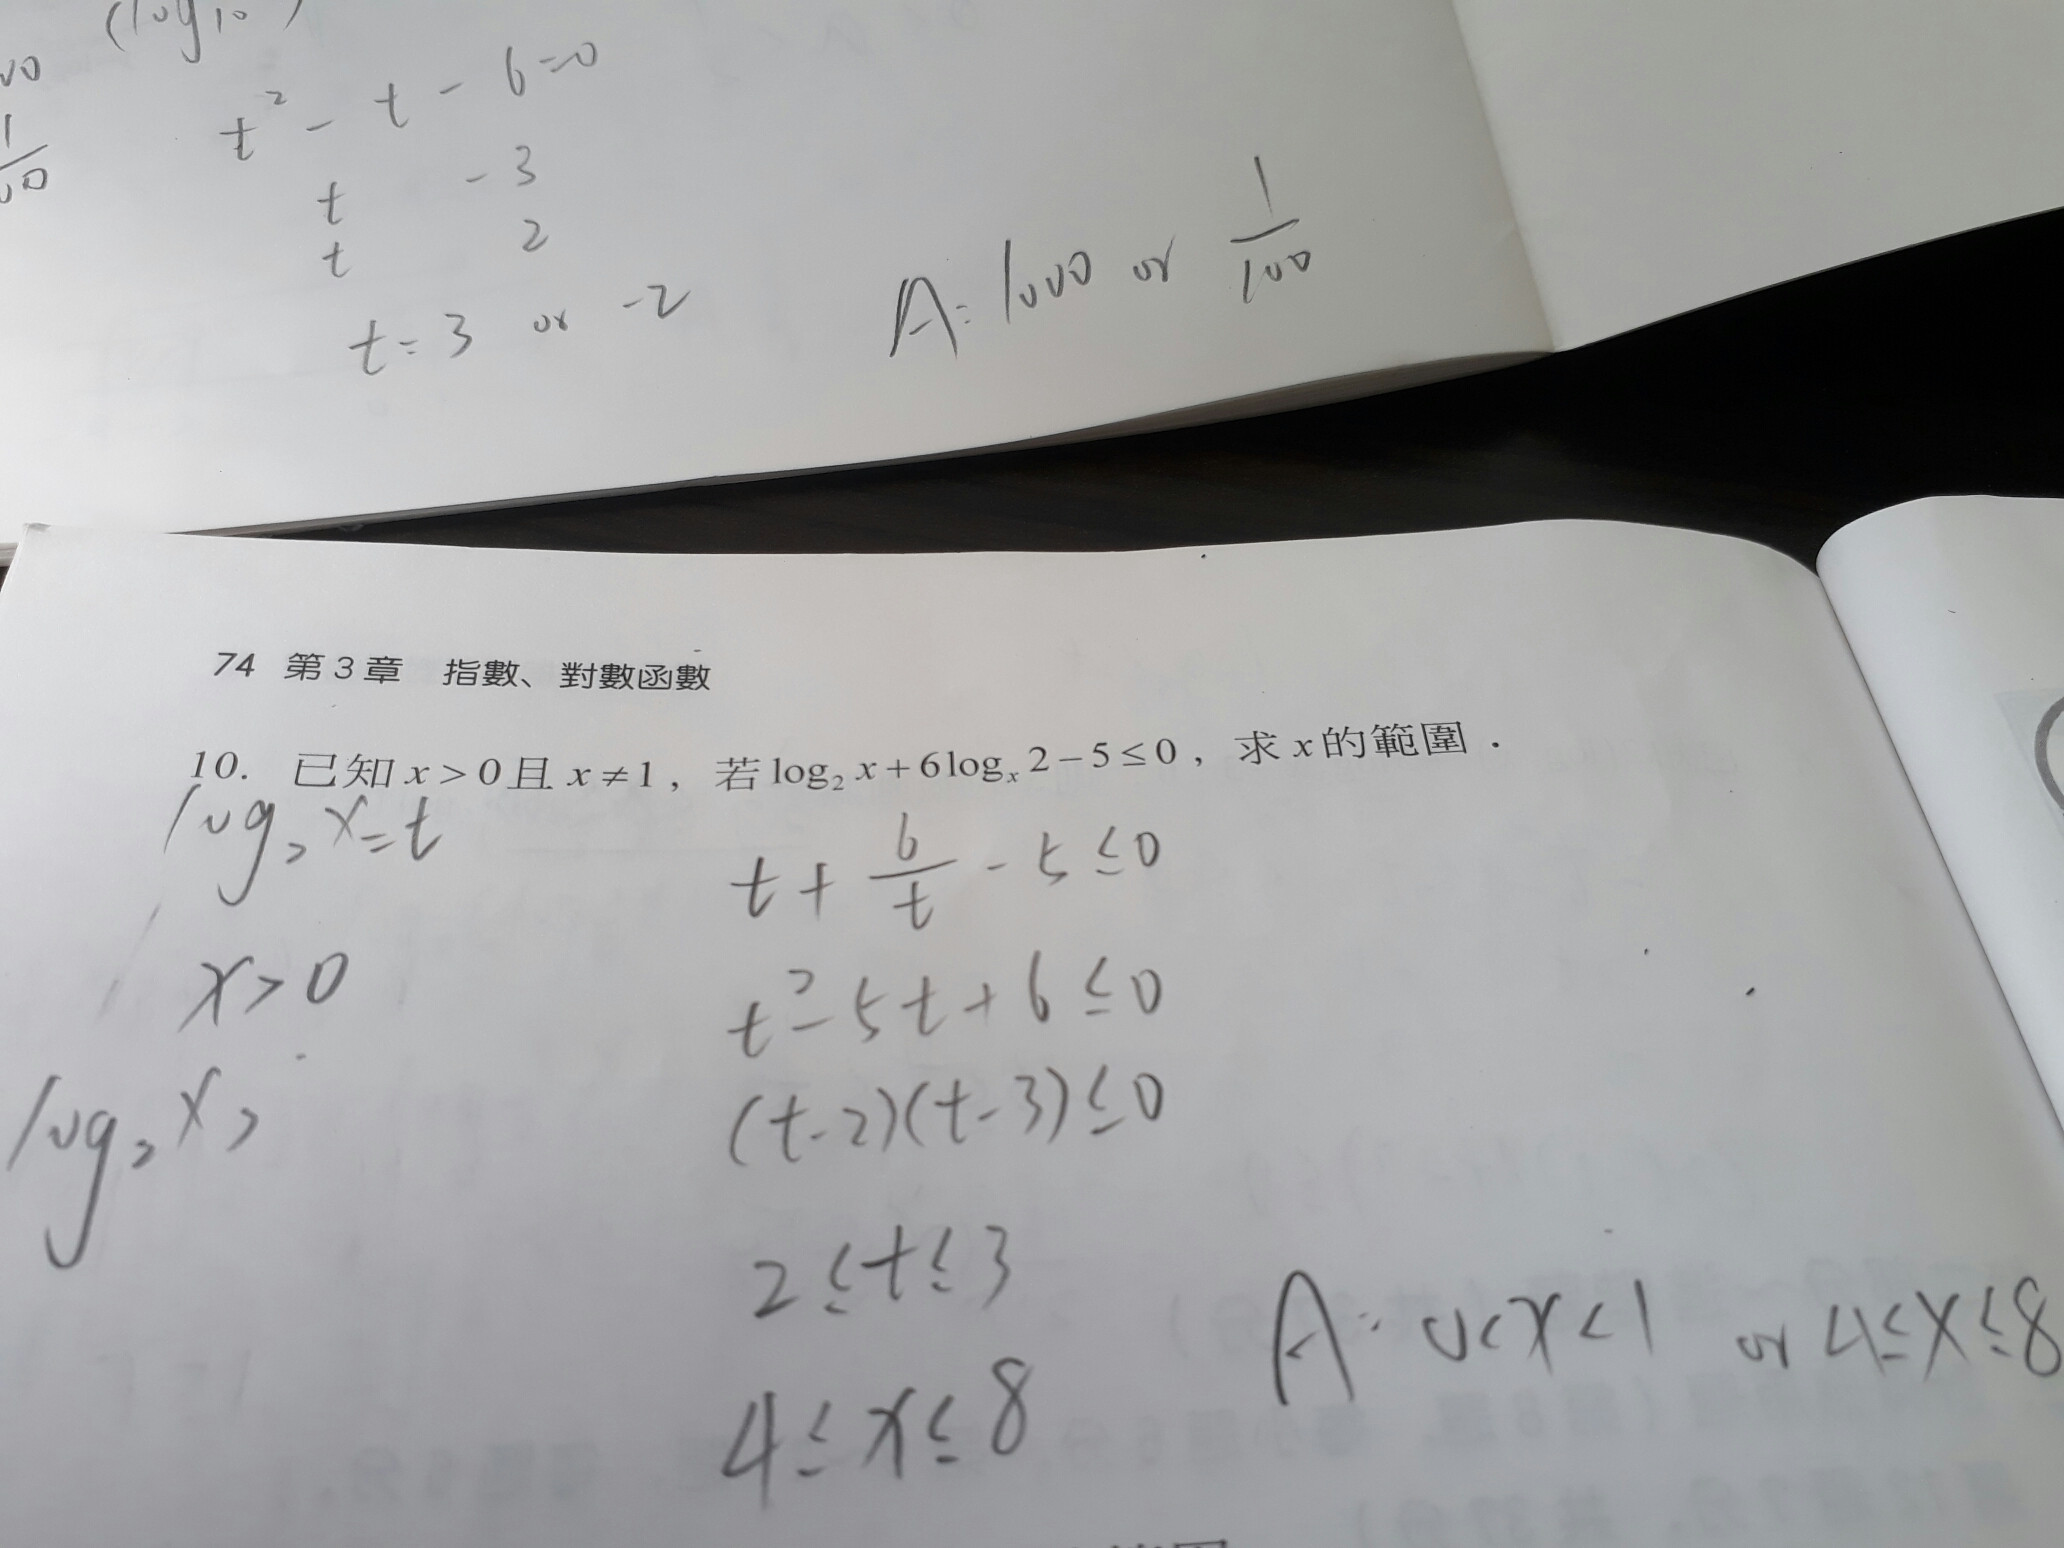 t² - t - 6=0
t - 3
t 2
t = 3 or -2
A: 1000 or 1/100
74 第3章 指數、對數函數
10. 已知 x > 0 且 x ≠ 1，若 log₂ x + 6 logₓ 2 - 5 ≤ 0，求 x 的範圍．
log₂ x = t
t + 6/t - 5 ≤ 0
x > 0
t² - 5t + 6 ≤ 0
log₂ x >
(t-2)(t-3) ≤ 0
2 ≤ t ≤ 3
A: 0<x<1 or 4≤x≤8
4 ≤ x ≤ 8